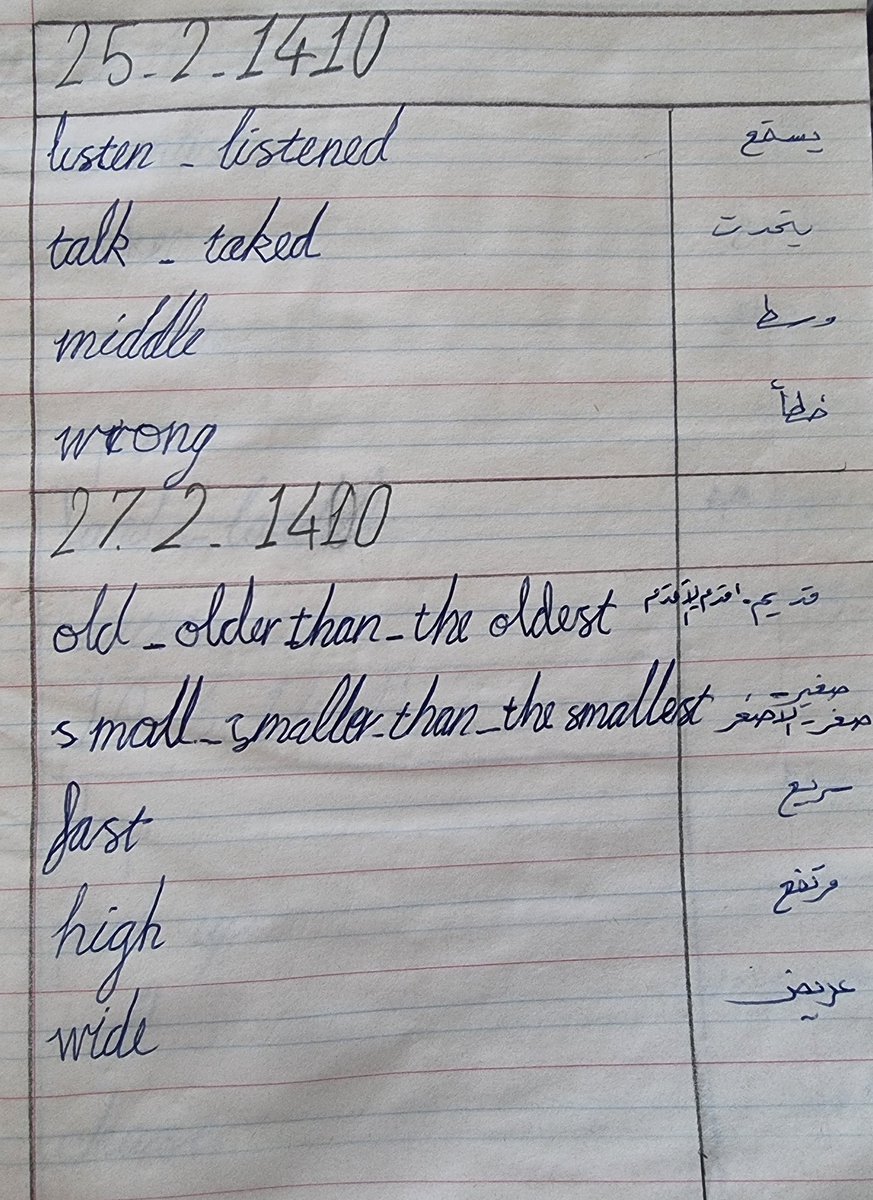 25-2-1410
listen - listened يستمع
talk - taked يتحدث
middle وسط
wrong خطأ
27.2-1410
old - older than - the oldest قديم - اقدم - الاقدم
small - smaller than - the smallest صغير - صغر - الاصغر
fast سريع
high مرتفع
wide عريض